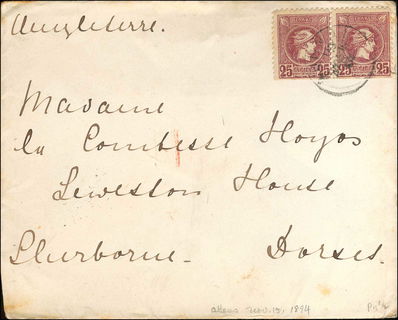 Angleterre.
25 25
Madame
la Comtesse Hoyos
Leweston House
Sherborne
Dorset.
athens nov. 15, 1894